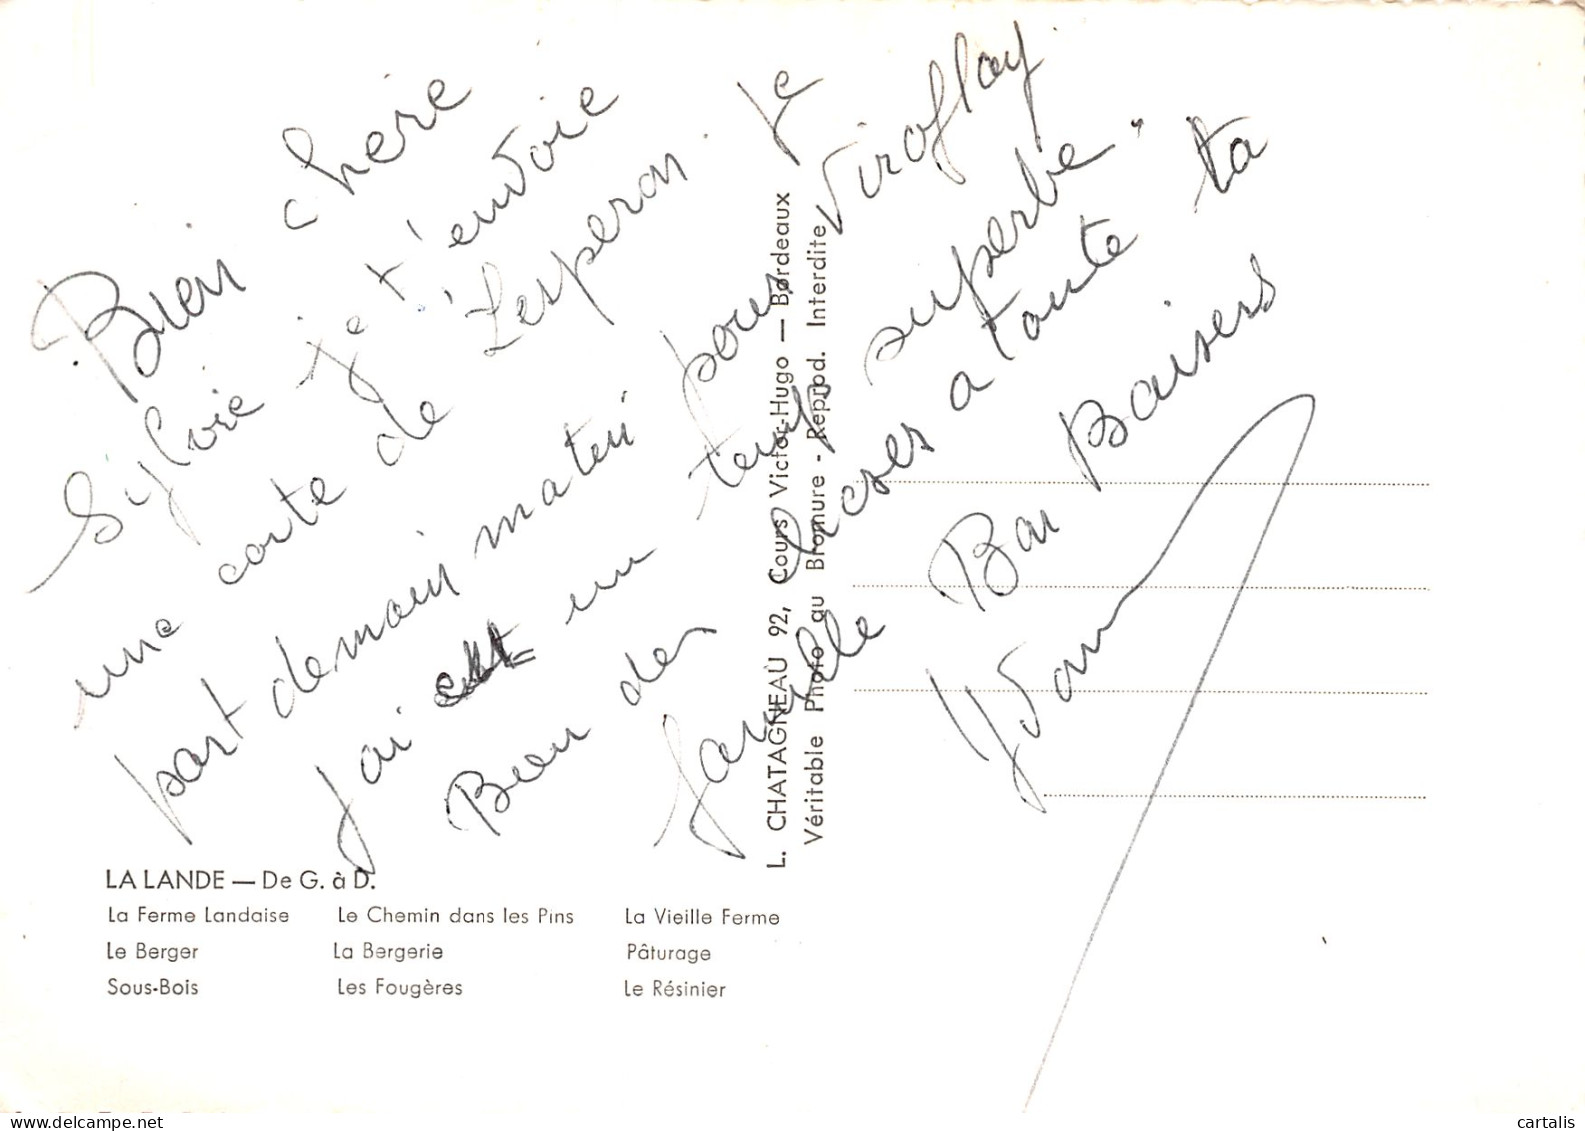 Bien chère
Sylvie je t'envoie
une carte de Lesperon. Je
part demain matin pour Viroflay.
J'ai eut un temps superbe"
Bien des choses a toute ta
famille Bons Baisers
Yvonne
L. CHATAGNEAU 92, Cours Victor-Hugo — Bordeaux
Véritable Photo au Bromure - Reprod. Interdite
LA LANDE — De G. à D.
La Ferme Landaise Le Chemin dans les Pins La Vieille Ferme
Le Berger La Bergerie Pâturage
Sous-Bois Les Fougères Le Résinier
delcampe.net
cartalis